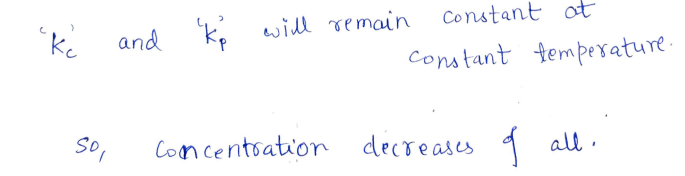 'Kc' and 'Kp' will remain constant at
constant temperature.
So, Concentration decreases of all.